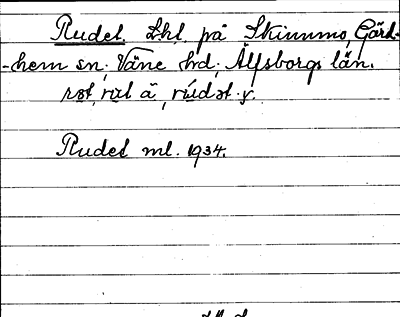 Rudet, Lhl på Skimmo, Gärd-
-hem sn; Väne hd; Älfsborgs län.
å, rúdət y.
Rudet ml. 1934.